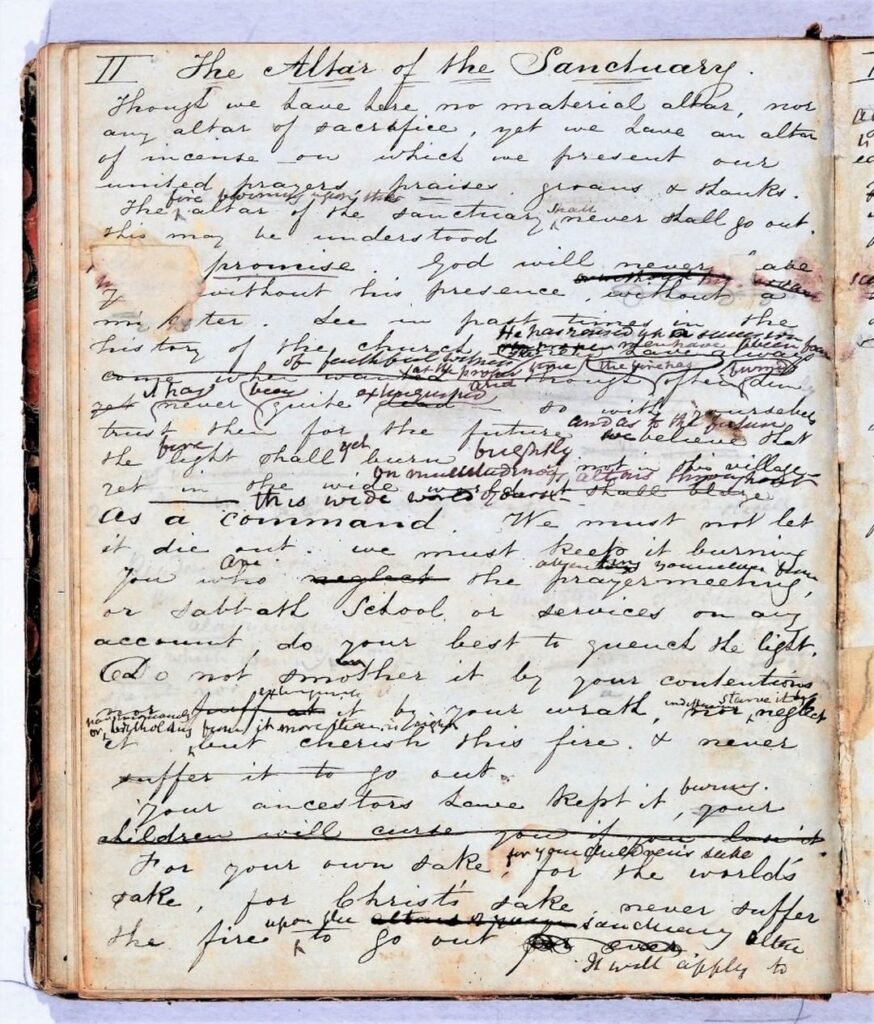 II The Altar of the Sanctuary.
Though we have here no material altar, nor
any altar of sacrifice, yet we have an altar
of incense on which we present our
united prayers, praises, groans & thanks.
fire burning upon the
The altar of the sanctuary shall never shall go out.
This may be understood
promise. God will never
without his presence, without a
See in past times in the
He has raised up a succession
history of the church
of faithful
at the proper time
come when though often
it has been extinguished and
yet never quite so with ourselves
and as to the future
trust then for the future we believe that
fire yet brightly
the light shall burn not in this village
on multitudinous altars throughout
yet in the wide world shall blaze
this wide
As a command. We must not let
it die out. We must keep it burning
are
You who neglect the prayermeeting,
or Sabbath School, or services on any
account, do your best to quench the light.
Do not smother it by your contentions
extinguish
nor it by your wrath, nor neglect
starve it by
or withholding burn it more than
it but cherish this fire & never
suffer it to go out.
burning.
Your ancestors have kept it, your
children will curse you if you lose it.
for your children's sake
For your own sake, for the world's
sake, for Christ's sake, never suffer
upon the sanctuary altar
the fire to go out for ever
It will apply to